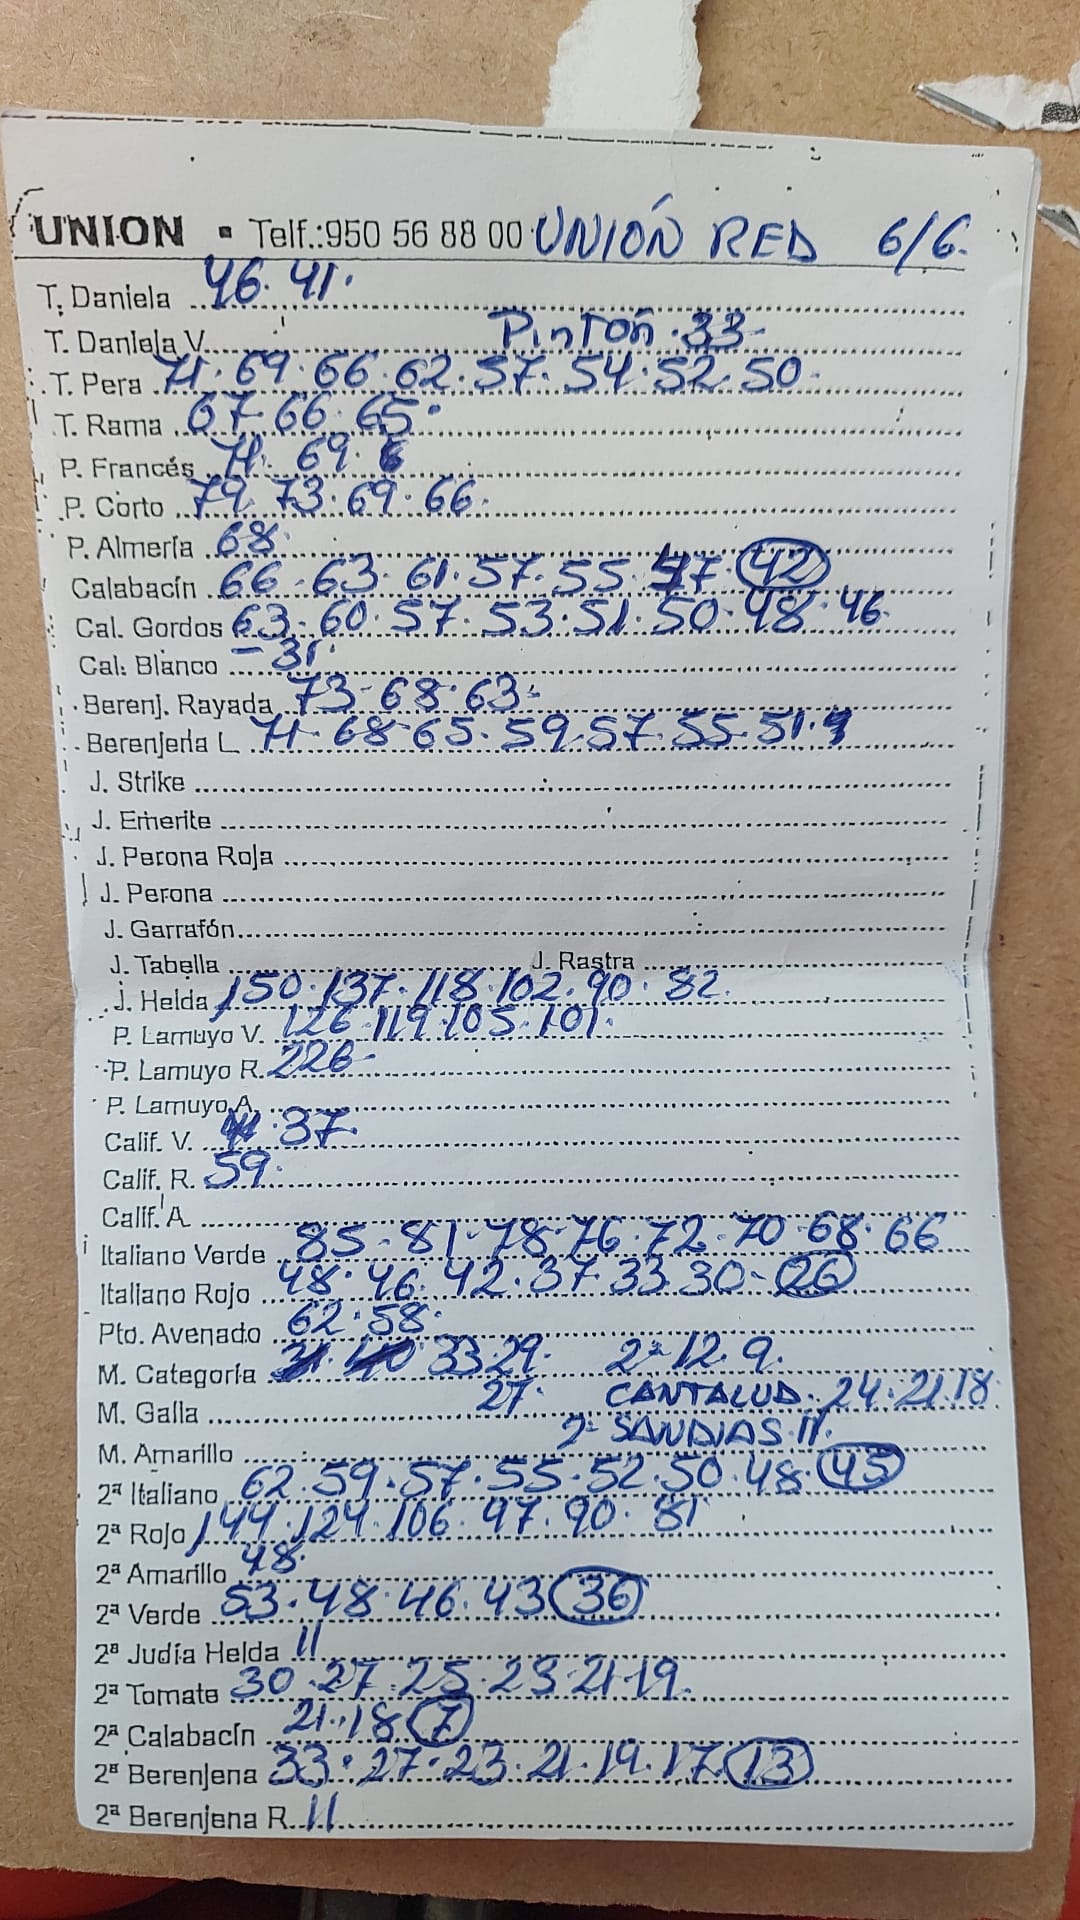 UNION ▪ Telf.:950 56 88 00 UNIÓN RED 6/6.
T. Daniela 46. 41.
T. Daniela V. PINTÓN . 33
T. Pera 71. 69. 66. 62. 57. 54. 52. 50.
T. Rama 67 66. 65.
P. Francés 71. 69.
P. Corto 79. 73. 69. 66.
P. Almería 68.
Calabacín 66. 63. 61. 57. 55. 47. 42
Cal. Gordos 63. 60. 57. 53. 51. 50. 48. 46.
Cal. Blanco - 31.
Berenj. Rayada 73. 68. 63.
Berenjena L 71. 68. 65. 59. 57. 55. 51.
J. Strike
J. Emerite
J. Perona Roja
J. Perona
J. Garrafón
J. Tabella J. Rastra
J. Helda 150. 137. 118. 102. 90. 82.
P. Lamuyo V. 126. 119. 105. 101.
P. Lamuyo R. 226
P. Lamuyo A.
Calif. V. 37.
Calif. R. 59.
Calif. A
Italiano Verde 85. 81. 78. 76. 72. 70. 68. 66
Italiano Rojo 48. 46. 42. 37. 33. 30. 26
Pto. Avenado 62. 58.
M. Categoría 33. 29. 2ª 12. 9.
M. Galia 27. CANTALUD. 24. 21. 18
2ª SANDIAS. 11.
M. Amarillo
2ª Italiano 62. 59. 57. 55. 52. 50. 48. 45
2ª Rojo 144. 124. 106. 97. 90. 81
2ª Amarillo 48.
2ª Verde 53. 48. 46. 43 36
2ª Judía Helda 11
2ª Tomate 30. 27. 25. 23. 21. 19.
2ª Calabacín 21. 18 7
2ª Berenjena 33. 27. 23. 21. 19. 17. 13
2ª Berenjena R. 11